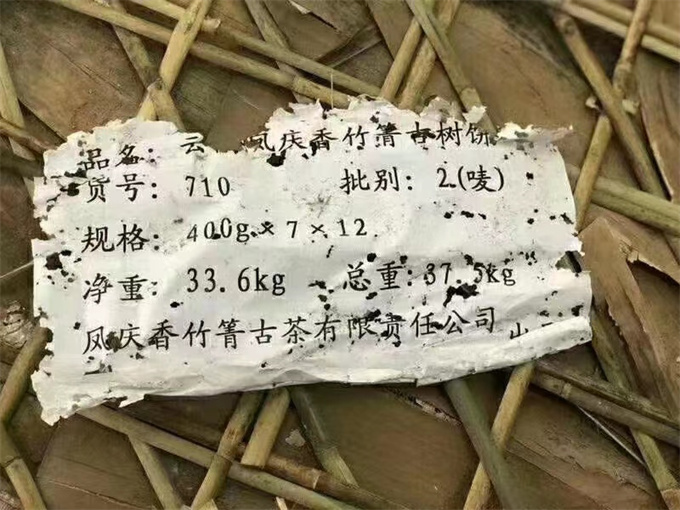 品名：云 凤庆香竹箐古树饼
货号：710 批别：2(唛)
规格：400g×7×12
净重：33.6kg 总重：37.5kg
凤庆香竹箐古茶有限责任公司 出